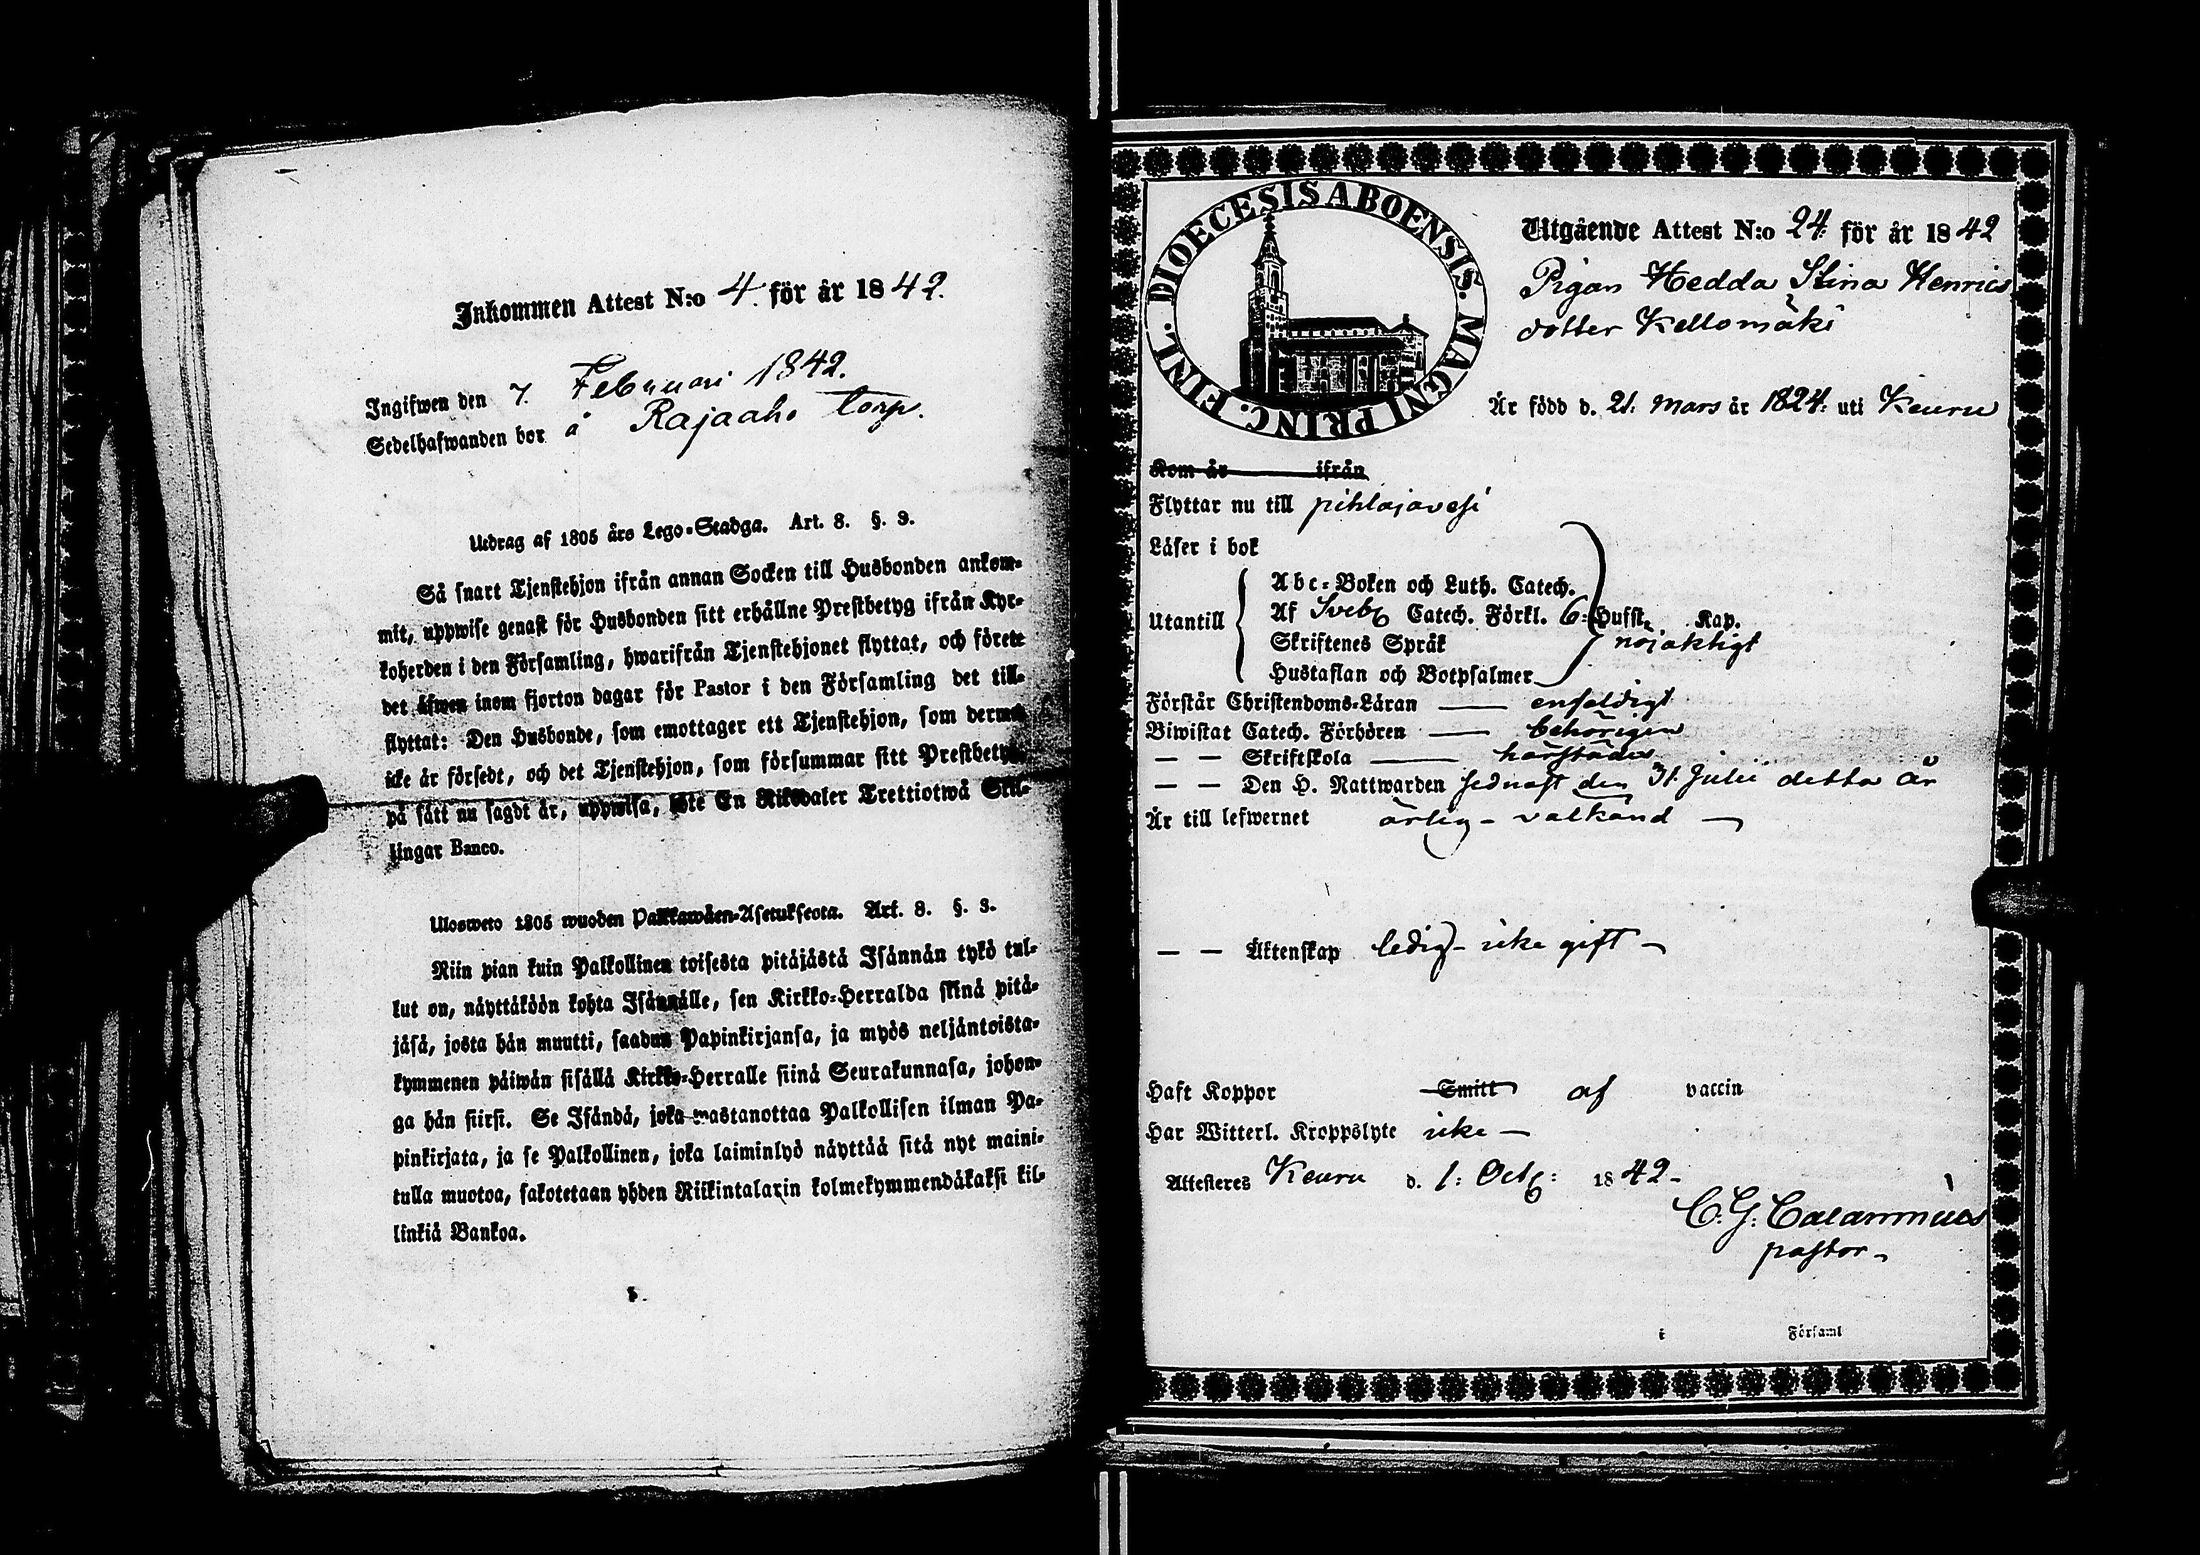 Inkommen Attest N:o 4. för år 1842.
Ingifwen den 7. Februari 1842.
Sedelhafwanden bor å Rajaaho torp.
Utdrag af 1805 års Lego-Stadga. Art. 8. §. 3.
Så snart Tjenstehjon ifrån annan Socken till Husbonden ankom-
mit, uppwise genast för Husbonden sitt erhållne Prestbetyg ifrån Kyr-
koherden i den Församling, hwarifrån Tjenstehjonet flyttat, och förete
det äfwen inom fjorton dagar för Pastor i den Församling det till-
flyttat: Den Husbonde, som emottager ett Tjenstehjon, som dermed
icke är försedt, och det Tjenstehjon, som försummar sitt Prestbetyg,
på sätt nu sagdt är, uppwisa, böte En Riksdaler Trettiotwå Skil-
lingar Banco.
Ulosweto 1805 wuoden Palkkawäen-Asetuksesta. Art. 8. §. 3.
Niin pian kuin Palkollinen toisesta pitäjästä Isännän tykö tul-
lut on, näyttäköön kohta Isännälle, sen Kirkko-Herralda siinä pitä-
jäsä, josta hän muutti, saadun Papinkirjansa, ja myös neljäntoista-
kymmenen päiwän sisällä Kirkko-Herralle siinä Seurakunnasa, johon-
ga hän siirsi. Se Isändä, joka wastanottaa Palkollisen ilman Pa-
pinkirjata, ja se Palkollinen, joka laiminlyö näyttää sitä nyt maini-
tulla muotoa, sakotetaan yhden Riikintalarin kolmekymmendäkaksi kil-
linkiä Bankoa.
DIOECESIS ABOENSIS. MAGNI PRINC. FINL.
Utgående Attest N:o 24. för år 1842
Pigan Hedda Stina Henrics
dotter Kellomäki
Är född d. 21. Mars år 1824. uti Keuru
Kom år ifrån
Flyttar nu till pihlajavesi
Läser i bok
Abc-Boken och Luth. Catech.
Utantill Af Sveb Catech. Förkl. 6: Hufst. Kap.
Skriftenes Språk nöjaktigt
Hustaflan och Botpsalmer
Förstår Christendoms-Läran enfaldigt
Biwistat Catech. Förhören behörigen
— — Skriftskola härstädes
— — Den H. Nattwarden sednast den 31 Julii detta år
Är till lefwernet ärlig - välkänd
— — Äktenskap ledig - icke gift
Haft Koppor Smitt af vaccin
Har Witterl. Kroppslyte icke
Attesteres Keuru d. 1. Octb: 1842
C: G: Calamnius
pastor
i Församl